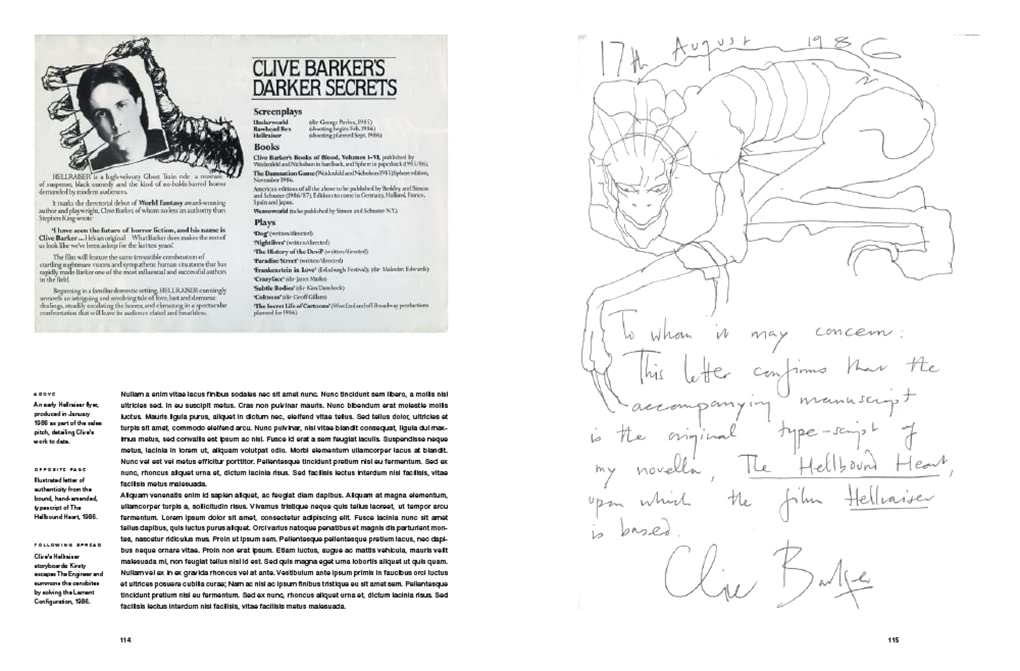 CLIVE BARKER'S
DARKER SECRETS
Screenplays
Underworld (dir George Pavlou, 1985)
Rawhead Rex (shooting begins Feb. 1986)
Hellraiser (shooting planned Sept. 1986)
Books
Clive Barker's Books of Blood, Volumes I-VI, published by
Weidenfeld and Nicholson in hardback, and Sphere in paperback (1985/86).
The Damnation Game (Weidenfeld and Nicholson 1985) Sphere edition,
November 1986.
American editions of all the above to be published by Berkley and Simon
and Schuster (1986/87). Editions to come in Germany, Holland, France,
Spain and Japan.
Weaveworld (to be published by Simon and Schuster N.Y.).
Plays
'Dog' (written/directed)
'Nightlives' (written/directed)
'The History of the Devil' (written/directed)
'Paradise Street' (written/directed)
'Frankenstein in Love' (Edinburgh Festival); (dir Malcolm Edwards)
'Crazyface' (dir Janet Marks)
'Subtle Bodies' (dir Kim Dambeck)
'Colossus' (dir Geoff Gillam)
'The Secret Life of Cartoons' (West End and off-Broadway productions
planned for 1986)
HELLRAISER is a high-velocity Ghost Train ride a mixture
of suspense, black comedy and the kind of no-holds-barred horror
demanded by modern audiences.
It marks the directorial debut of World Fantasy award-winning
author and playwright, Clive Barker; of whom no less an authority than
Stephen King wrote
'I have seen the future of horror fiction, and his name is
Clive Barker ... He's an original What Barker does makes the rest of
us look like we've been asleep for the last ten years'.
The film will feature the same irresistible combination of
startling nightmare visions and sympathetic human situations that has
rapidly made Barker one of the most influential and successful authors
in the field.
Beginning in a familiar domestic setting, HELLRAISER cunningly
unravels an intriguing and involving tale of love, lust and demonic
dealings, steadily escalating the horror, and climaxing in a spectacular
confrontation that will leave its audience elated and breathless.
ABOVE
An early Hellraiser flyer,
produced in January
1986 as part of the sales
pitch, detailing Clive's
work to date.
OPPOSITE PAGE
Illustrated letter of
authenticity from the
bound, hand-amended,
typescript of The
Hellbound Heart, 1986.
FOLLOWING SPREAD
Clive's Hellraiser
storyboards: Kirsty
escapes The Engineer and
summons the cenobites
by solving the Lament
Configuration, 1986.
Nullam a enim vitae lacus finibus sodales nec sit amet nunc. Nunc tincidunt sem libero, a mollis nisl
ultricies sed. In eu suscipit metus. Cras non pulvinar mauris. Nunc bibendum erat molestie mollis
luctus. Mauris ligula purus, aliquet in dictum nec, eleifend vitae tellus. Sed tellus dolor, ultricies et
turpis sit amet, commodo eleifend arcu. Nunc pulvinar, nisi vitae blandit consequat, ligula dui max-
imus metus, sed convallis est ipsum ac nisl. Fusce id erat a sem feugiat iaculis. Suspendisse neque
metus, lacinia in lorem ut, aliquam volutpat odio. Morbi elementum ullamcorper lacus at blandit.
Nunc vel est vel metus efficitur porttitor. Pellentesque tincidunt pretium nisl eu fermentum. Sed ex
nunc, rhoncus aliquet urna et, dictum lacinia risus. Sed facilisis lectus interdum nisl facilisis, vitae
facilisis metus malesuada.
Aliquam venenatis enim id sapien aliquet, ac feugiat diam dapibus. Aliquam at magna elementum,
ullamcorper turpis a, sollicitudin risus. Vivamus tristique neque quis tellus laoreet, ut tempor arcu
fermentum. Lorem ipsum dolor sit amet, consectetur adipiscing elit. Fusce lacinia nunc sit amet
tellus dapibus, quis luctus purus aliquet. Orci varius natoque penatibus et magnis dis parturient mon-
tes, nascetur ridiculus mus. Proin ut ipsum sem. Pellentesque pellentesque pretium lacus, nec dapi-
bus neque ornare vitae. Proin non erat ipsum. Etiam luctus, augue ac mattis vehicula, mauris velit
malesuada mi, non feugiat tellus nisl id est. Sed quis magna eget urna lobortis aliquet ut quis quam.
Nullam vel ex in ex gravida rhoncus vel at ante. Vestibulum ante ipsum primis in faucibus orci luctus
et ultrices posuere cubilia curae; Nam ac nisl ac ipsum finibus tristique eu sit amet sem. Pellentesque
tincidunt pretium nisl eu fermentum. Sed ex nunc, rhoncus aliquet urna et, dictum lacinia risus. Sed
facilisis lectus interdum nisl facilisis, vitae facilisis metus malesuada.
114
17th August 1986
To whom it may concern:
This letter confirms that the
accompanying manuscript
is the original type-script of
my novella, The Hellbound Heart,
upon which the film Hellraiser
is based.
Clive Barker
115